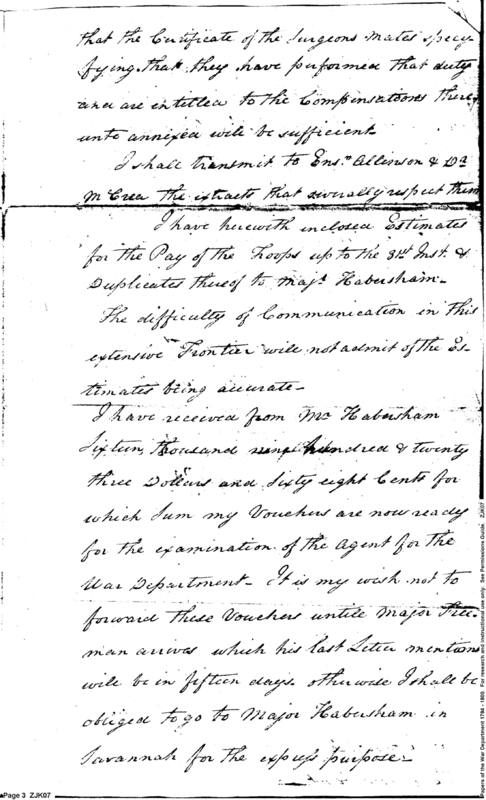 that the Certificate of the Surgeons Mates speci-
fying that they have performed that duty
and are entitled to the Compensations there,
unto annexed will be sufficient
I shall transmit to Ensn. Allinson & Dr.
McCrea the extracts that severally respect them
I have herewith inclosed Estimates
for the Pay of the Troops up to the 31st Inst. &
Duplicates thereof to Majr. Habersham-
The difficulty of Communication in this
extensive Frontier will not admit of the Es-
timates being accurate-
I have received from Mr. Habersham
Sixteen thousand nine hundred & twenty
three Dollars and Sixty eight Cents for
which Sum my Vouchers are now ready
for the examination of the Agent for the
War Department- It is my wish not to
forward these Vouchers untile Major Free-
man arrives which his last Letter mentions
will be in fifteen days. otherwise I shall be
obliged to go to Major Habersham in
Savannah for the express purpose-
Page 3 ZJK07
Papers of the War Department 1784 - 1800. For research and instructional use only. See Permissions Guide. ZJK07